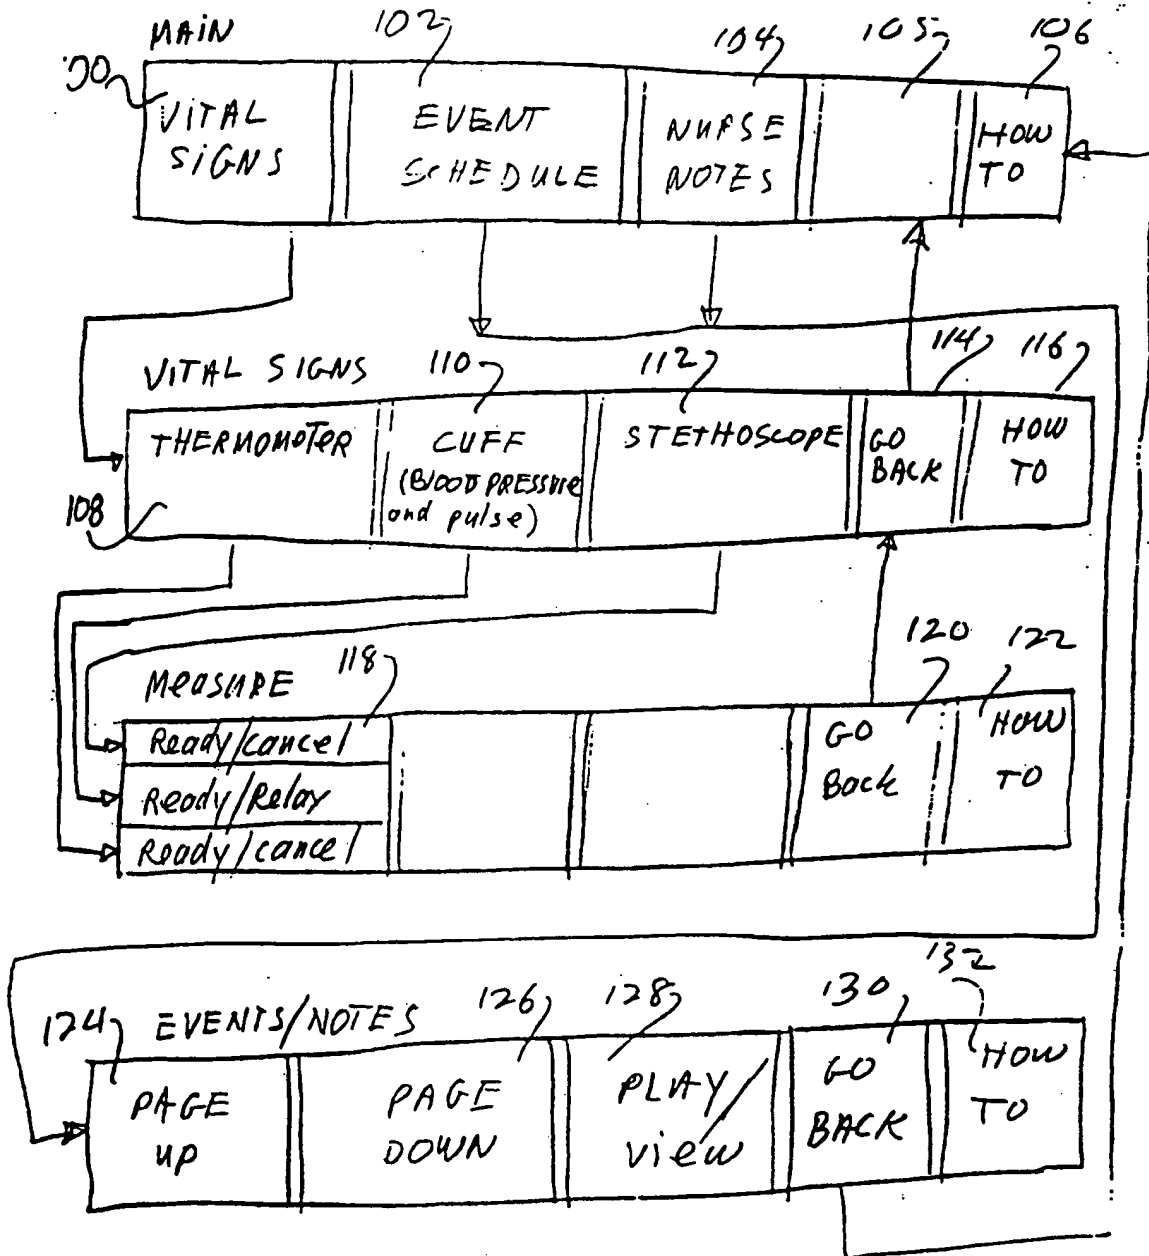 MAIN
102
104
105
106
00
VITAL
SIGNS
EVENT
SCHEDULE
NURSE
NOTES
HOW
TO
VITAL SIGNS
110
112
114
116
THERMOMETER
CUFF
(BLOOD PRESSURE
and pulse)
STETHOSCOPE
GO
BACK
HOW
TO
108
MEASURE
118
120
122
Ready/cancel
Ready/Relay
Ready/cancel
GO
Back
HOW
TO
124
EVENTS/NOTES
126
128
130
132
PAGE
UP
PAGE
DOWN
PLAY/
view
GO
BACK
HOW
TO